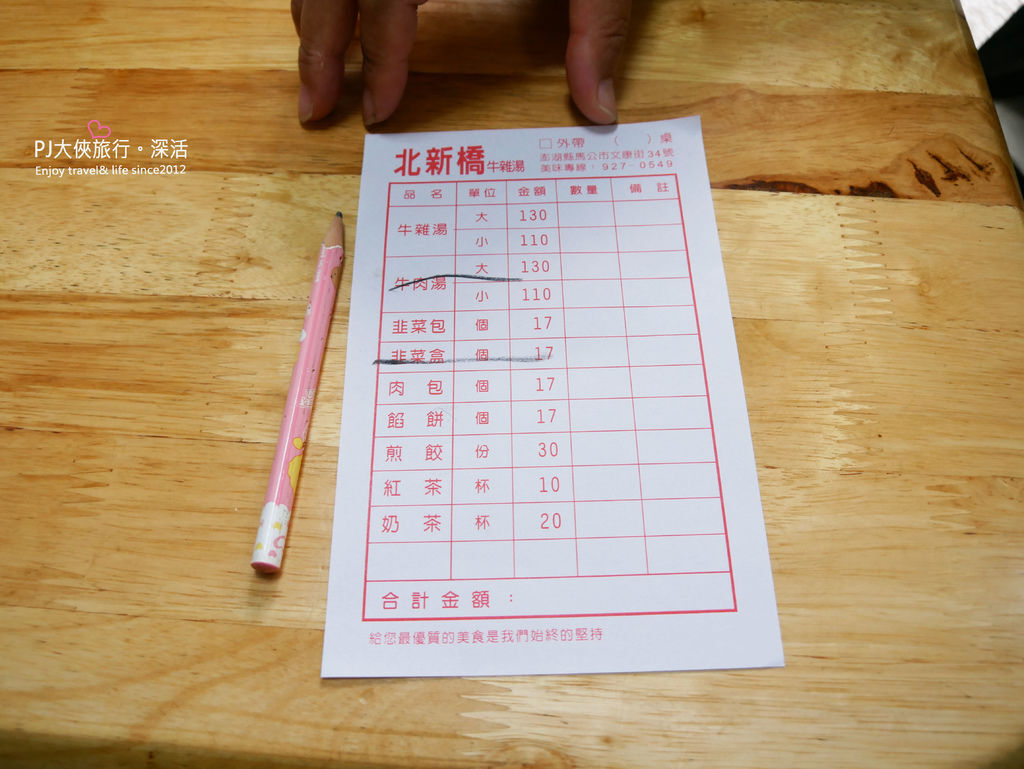 PJ大俠旅行。深活
Enjoy travel& life since2012
北新橋牛雜湯
□外帶 ( )桌
澎湖縣馬公市文康街34號
美味專線：927-0549
品名 單位 金額 數量 備註
牛雜湯 大 130
小 110
牛肉湯 大 130
小 110
韭菜包 個 17
韭菜盒 個 17
肉包 個 17
餡餅 個 17
煎餃 份 30
紅茶 杯 10
奶茶 杯 20
合計金額：
給您最優質的美食是我們始終的堅持